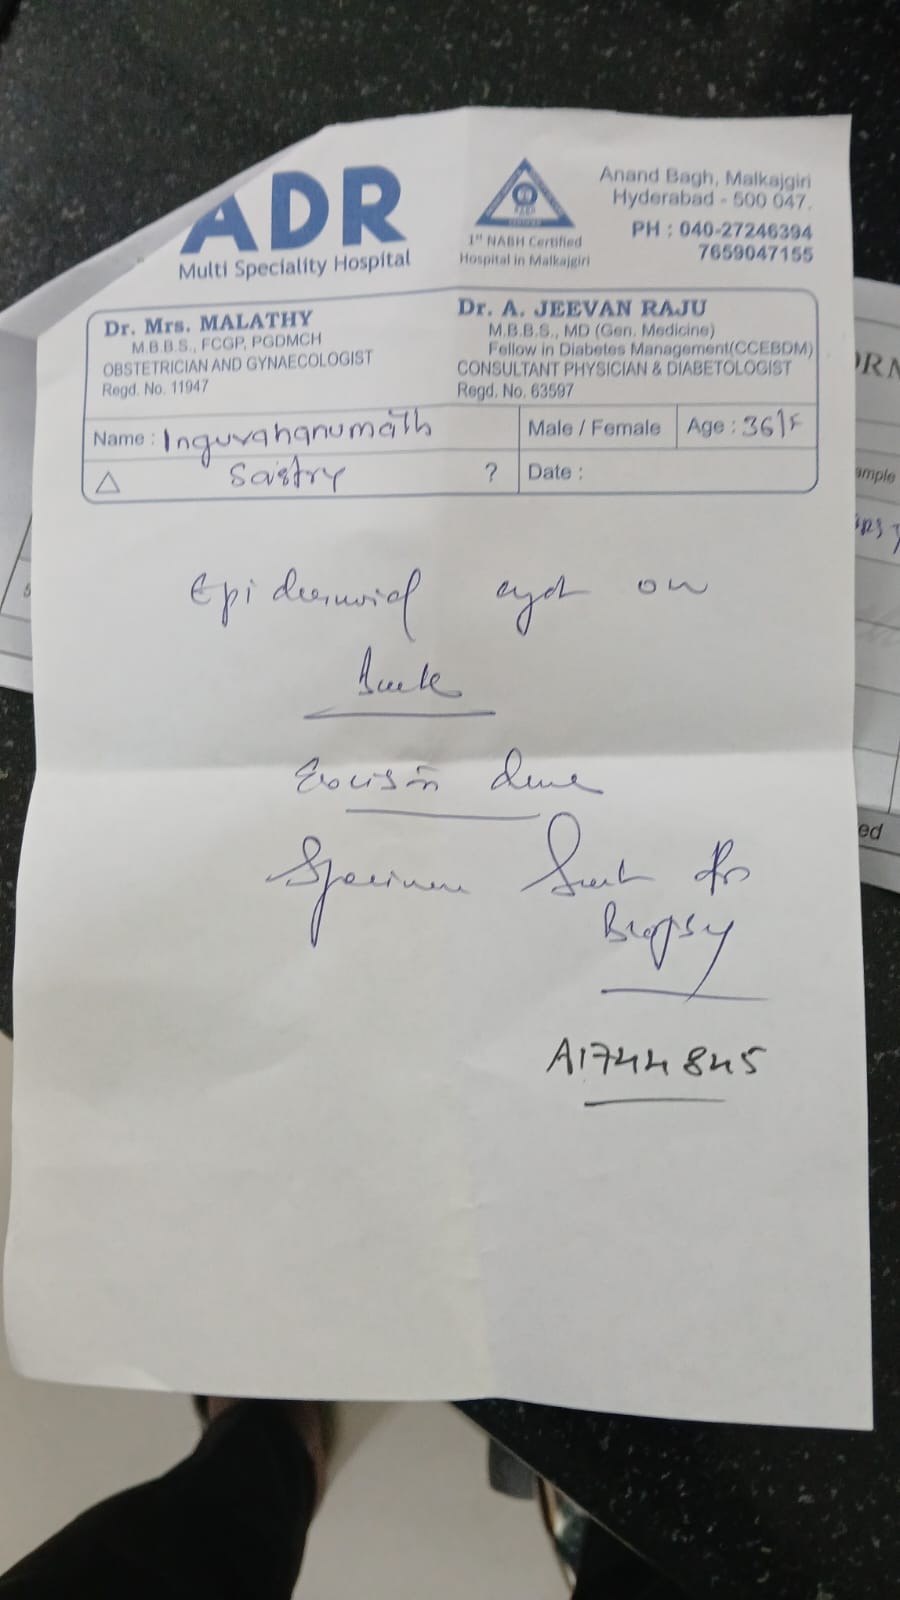 ADR
Multi Speciality Hospital
1st NABH Certified
Hospital in Malkajgiri
Anand Bagh, Malkajgiri
Hyderabad - 500 047.
PH : 040-27246394
7659047155
Dr. Mrs. MALATHY
M.B.B.S., FCGP, PGDMCH
OBSTETRICIAN AND GYNAECOLOGIST
Regd. No. 11947
Dr. A. JEEVAN RAJU
M.B.B.S., MD (Gen. Medicine)
Fellow in Diabetes Management(CCEBDM)
CONSULTANT PHYSICIAN & DIABETOLOGIST
Regd. No. 63597
Name : Inguvahanumath
Sastry
Male / Female
Age : 36/F
△
?
Date :
Epidermoid cyst on
Excision done
Specimen Sent for
Biopsy
A1744845
ed